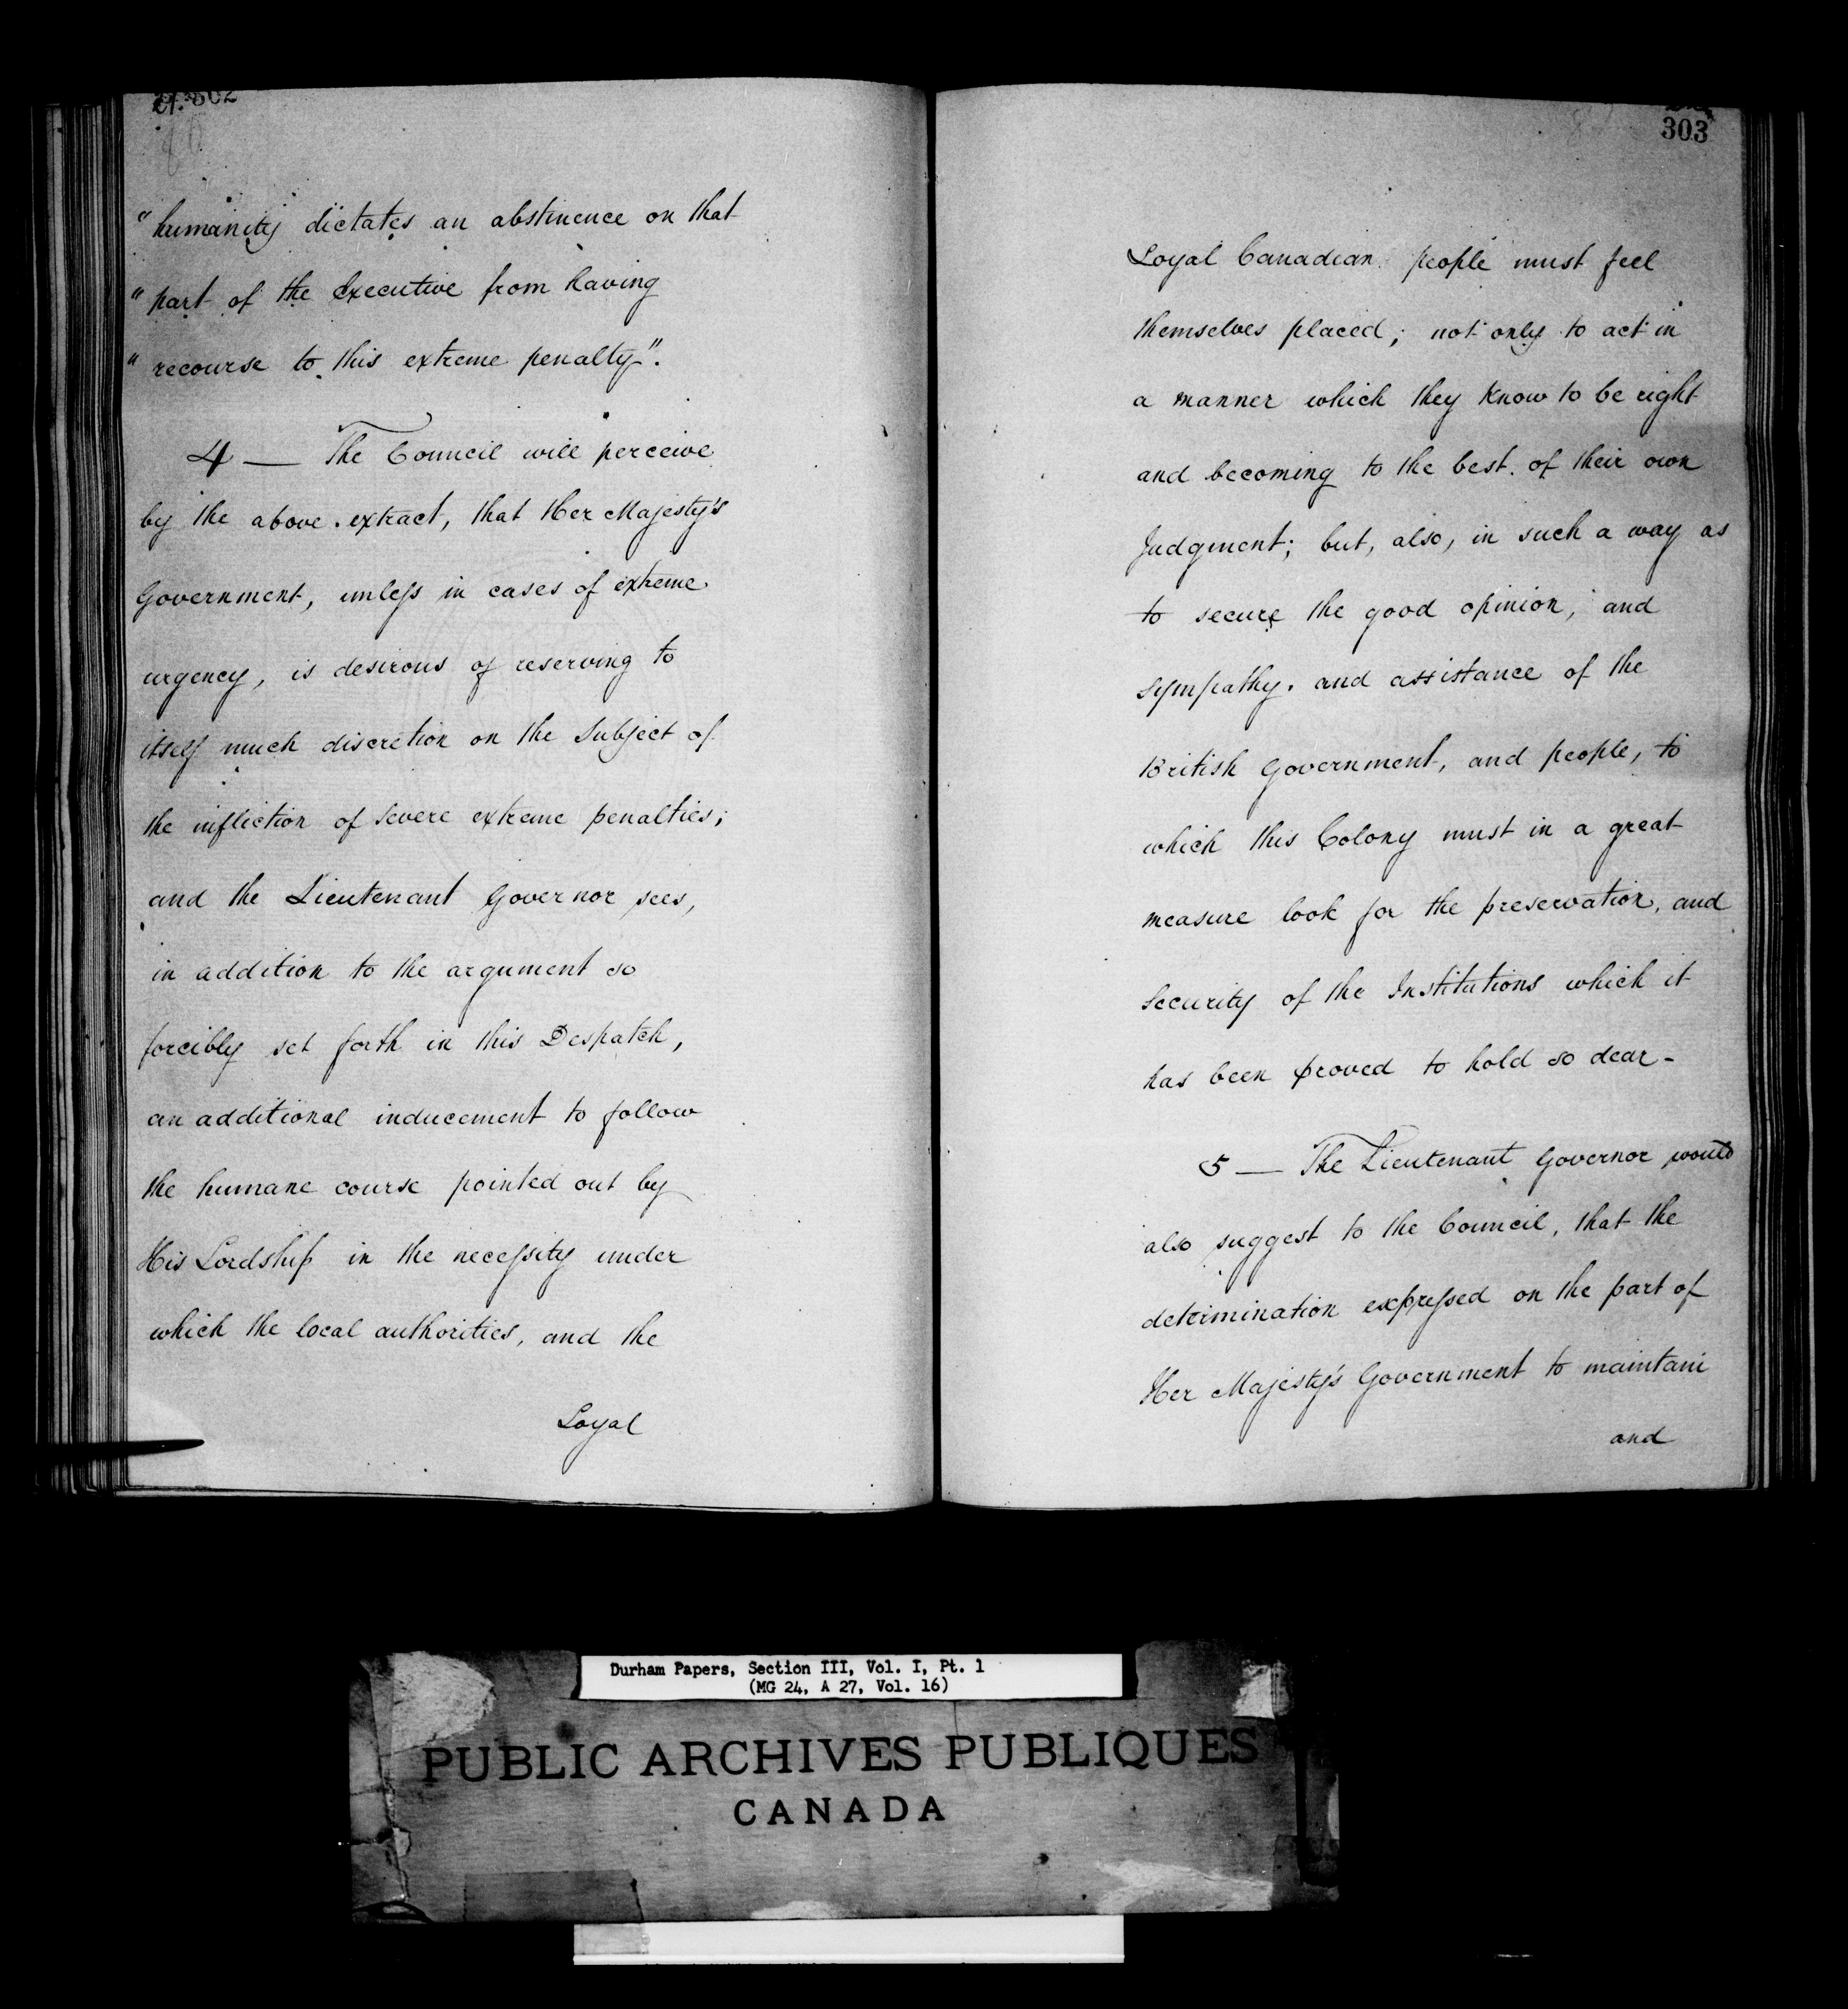 302
"humanity dictates an abstinence on that
"part of the Executive from having
"recourse to this extreme penalty".
4 — The Council will perceive
by the above extract, that Her Majesty's
Government, unleſs in cases of extreme
urgency, is desirous of reserving to
itself much discretion on the Subject of
the infliction of severe extreme penalties;
and the Lieutenant Governor sees,
in addition to the argument so
forcibly set forth in this Despatch,
an additional inducement to follow
the humane course pointed out by
His Lordship in the neceſsity under
which the local authorities, and the
Loyal
303
Loyal Canadian people must feel
themselves placed; not only to act in
a manner which they know to be right
and becoming to the best of their own
Judgment; but, also, in such a way as
to secure the good opinion, and
Sympathy. and assistance of the
British Government, and people, to
which this Colony must in a great
measure look for the preservation, and
Security of the Institutions which it
has been proved to hold so dear -
5 — The Lieutenant Governor would
also suggest to the Council, that the
determination expreſsed on the part of
Her Majesty's Government to maintain
and
Durham Papers, Section III, Vol. I, Pt. 1
(MG 24, A 27, Vol. 16)
PUBLIC ARCHIVES PUBLIQUES
CANADA